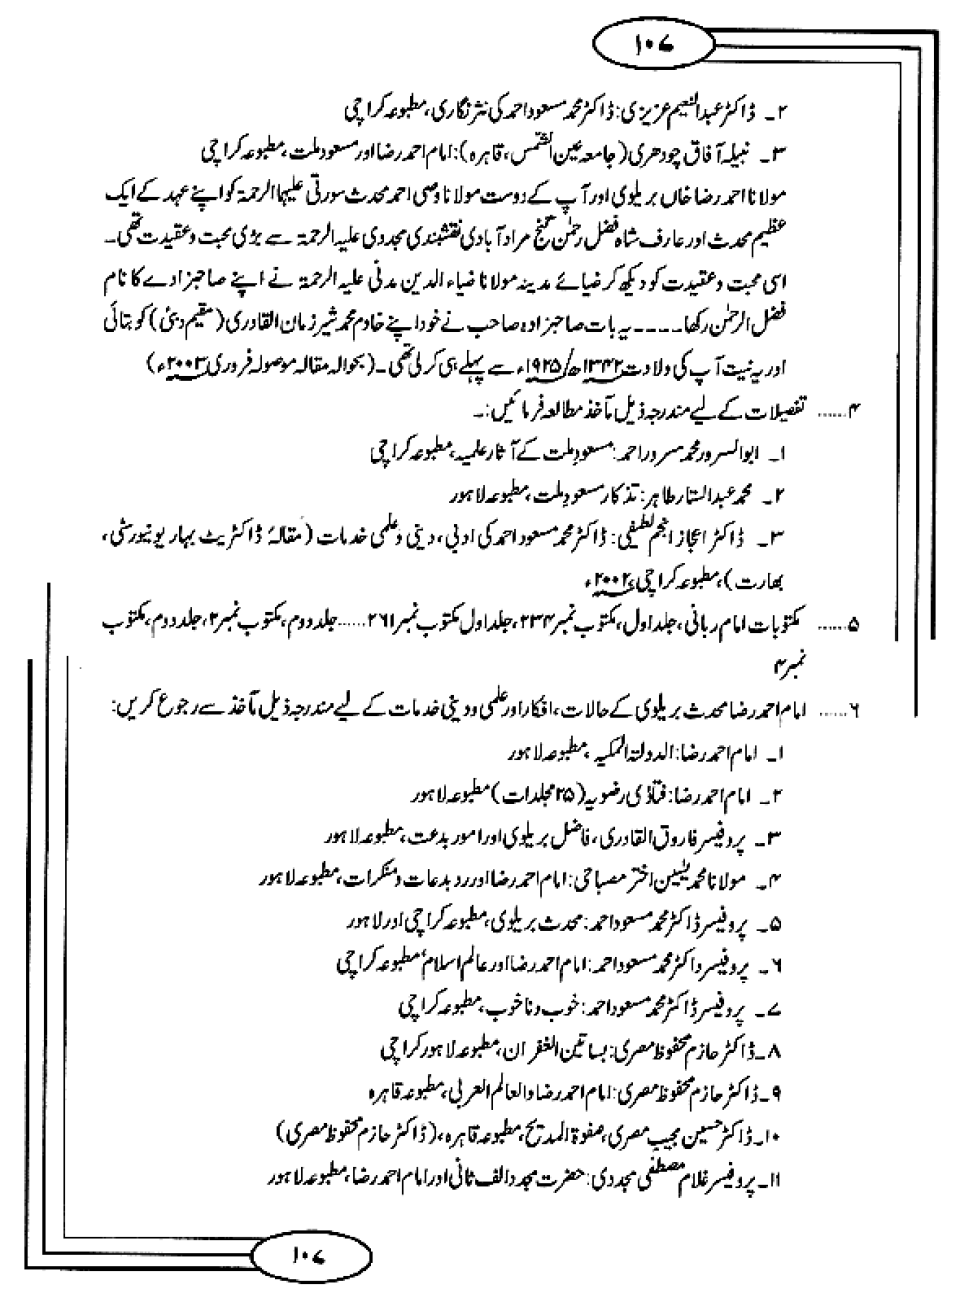 ۱۰۷
۲۔ ڈاکٹر عبدالنعیم عزیزی: ڈاکٹر محمد مسعود احمد کی نثر نگاری، مطبوعہ کراچی
۳۔ نبیلہ آفاق چودھری (جامعہ عین الشمس، قاہرہ): امام احمد رضا اور مسعود ملت، مطبوعہ کراچی
مولانا احمد رضا خاں بریلوی اور آپ کے دوست مولانا وصی احمد محدث سورتی علیہما الرحمۃ کو اپنے عہد کے ایک
عظیم محدث اور عارف شاہ فضل رحمٰن گنج مراد آبادی نقشبندی مجددی علیہ الرحمۃ سے بڑی محبت و عقیدت تھی۔
اسی محبت و عقیدت کو دیکھ کر ضیائے مدینہ مولانا ضیاء الدین مدنی علیہ الرحمۃ نے اپنے صاحبزادے کا نام
فضل الرحمٰن رکھا۔۔۔۔۔ یہ بات صاحبزادہ صاحب نے خود اپنے خادم محمد شیر زمان القادری (مقیم دبئی) کو بتائی
اور یہ نیت آپ کی ولادت ۱۳۴۲ھ/۱۹۲۵ء سے پہلے ہی کر لی تھی۔ (بحوالہ مقالہ موصولہ فروری ۲۰۰۳ء)
۴...... تفصیلات کے لیے مندرجہ ذیل مآخذ مطالعہ فرمائیں:۔
۱۔ ابوالسرور محمد مسرور احمد: مسعودِ ملت کے آثار علمیہ، مطبوعہ کراچی
۲۔ محمد عبدالستار طاہر: تذکار مسعودِ ملت، مطبوعہ لاہور
۳۔ ڈاکٹر اعجاز انجم لطیفی: ڈاکٹر محمد مسعود احمد کی ادبی، دینی و علمی خدمات (مقالۂ ڈاکٹریٹ بہار یونیورسٹی،
بھارت)، مطبوعہ کراچی ۲۰۰۲ء
۵...... مکتوبات امام ربانی، جلد اول، مکتوب نمبر ۲۳۴، جلد اول مکتوب نمبر ۲۶۱...... جلد دوم، مکتوب نمبر ۲، جلد دوم، مکتوب
نمبر ۴
۶...... امام احمد رضا محدث بریلوی کے حالات، افکار اور علمی و دینی خدمات کے لیے مندرجہ ذیل مآخذ سے رجوع کریں:
۱۔ امام احمد رضا: الدولۃ المکیہ، مطبوعہ لاہور
۲۔ امام احمد رضا: فتاوٰی رضویہ (۲۵ مجلدات) مطبوعہ لاہور
۳۔ پروفیسر فاروق القادری، فاضل بریلوی اور امور بدعت، مطبوعہ لاہور
۴۔ مولانا محمد یٰسین اختر مصباحی: امام احمد رضا اور رد بدعات و منکرات، مطبوعہ لاہور
۵۔ پروفیسر ڈاکٹر محمد مسعود احمد: محدث بریلوی، مطبوعہ کراچی اور لاہور
۶۔ پروفیسر ڈاکٹر محمد مسعود احمد: امام احمد رضا اور عالم اسلام، مطبوعہ کراچی
۷۔ پروفیسر ڈاکٹر محمد مسعود احمد: خوب و ناخوب، مطبوعہ کراچی
۸۔ ڈاکٹر حازم محفوظ مصری: بساتین الغفران، مطبوعہ لاہور کراچی
۹۔ ڈاکٹر حازم محفوظ مصری: امام احمد رضا والعالم العربی، مطبوعہ قاہرہ
۱۰۔ ڈاکٹر حسین مجیب مصری، صفوۃ المدیح، مطبوعہ قاہرہ، (ڈاکٹر حازم محفوظ مصری)
۱۱۔ پروفیسر غلام مصطفٰی مجددی: حضرت مجدد الف ثانی اور امام احمد رضا، مطبوعہ لاہور
۱۰۷